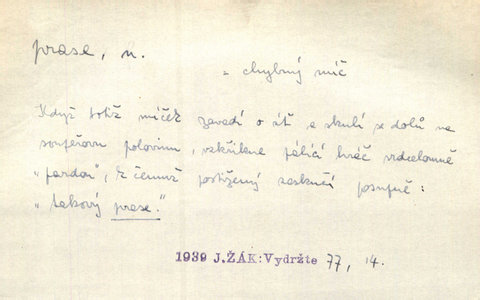 prase, n.
= chybný míč
Když totiž míček zavadí o síť a skulí se dolů na
soupeřovu polovinu, vykřikne pálící hráč vrdcelomně
„pardon", k čemuž postižený zaskučí posupně:
„takový prase."
1939 J.ŽÁK:Vydržte 77, 14.